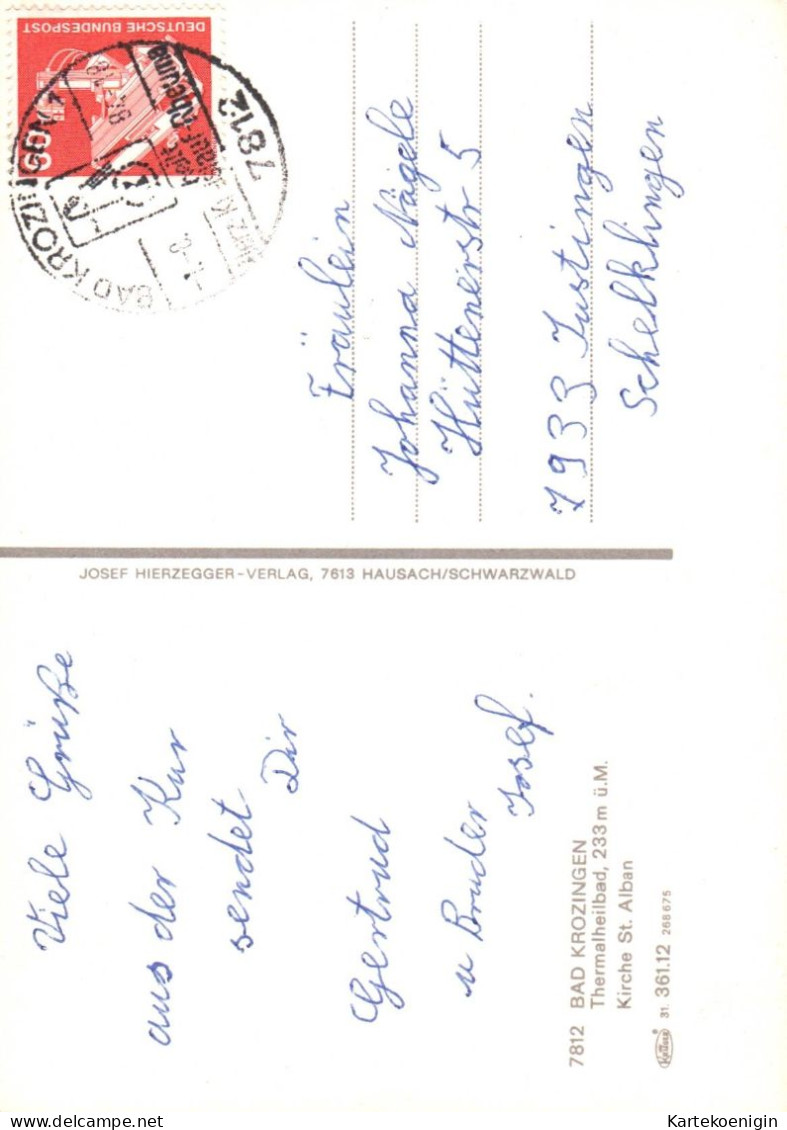 Viele Grüße
aus der Kur
sendet
Dir
Gertrud
u Bruder
Josef.
7812 BAD KROZINGEN
Thermalheilbad, 233 m ü.M.
Kirche St. Alban
31. 361.12 268675
JOSEF HIERZEGGER-VERLAG, 7613 HAUSACH/SCHWARZWALD
DEUTSCHE BUNDESPOST
60
7812
BAD KROZINGEN 1
Herz-Kreislauf-Rheuma
Fräulein
Johanna Nägele
Hüttenerstr 5
7933 Justingen
Schelklingen
Kartekoenigin